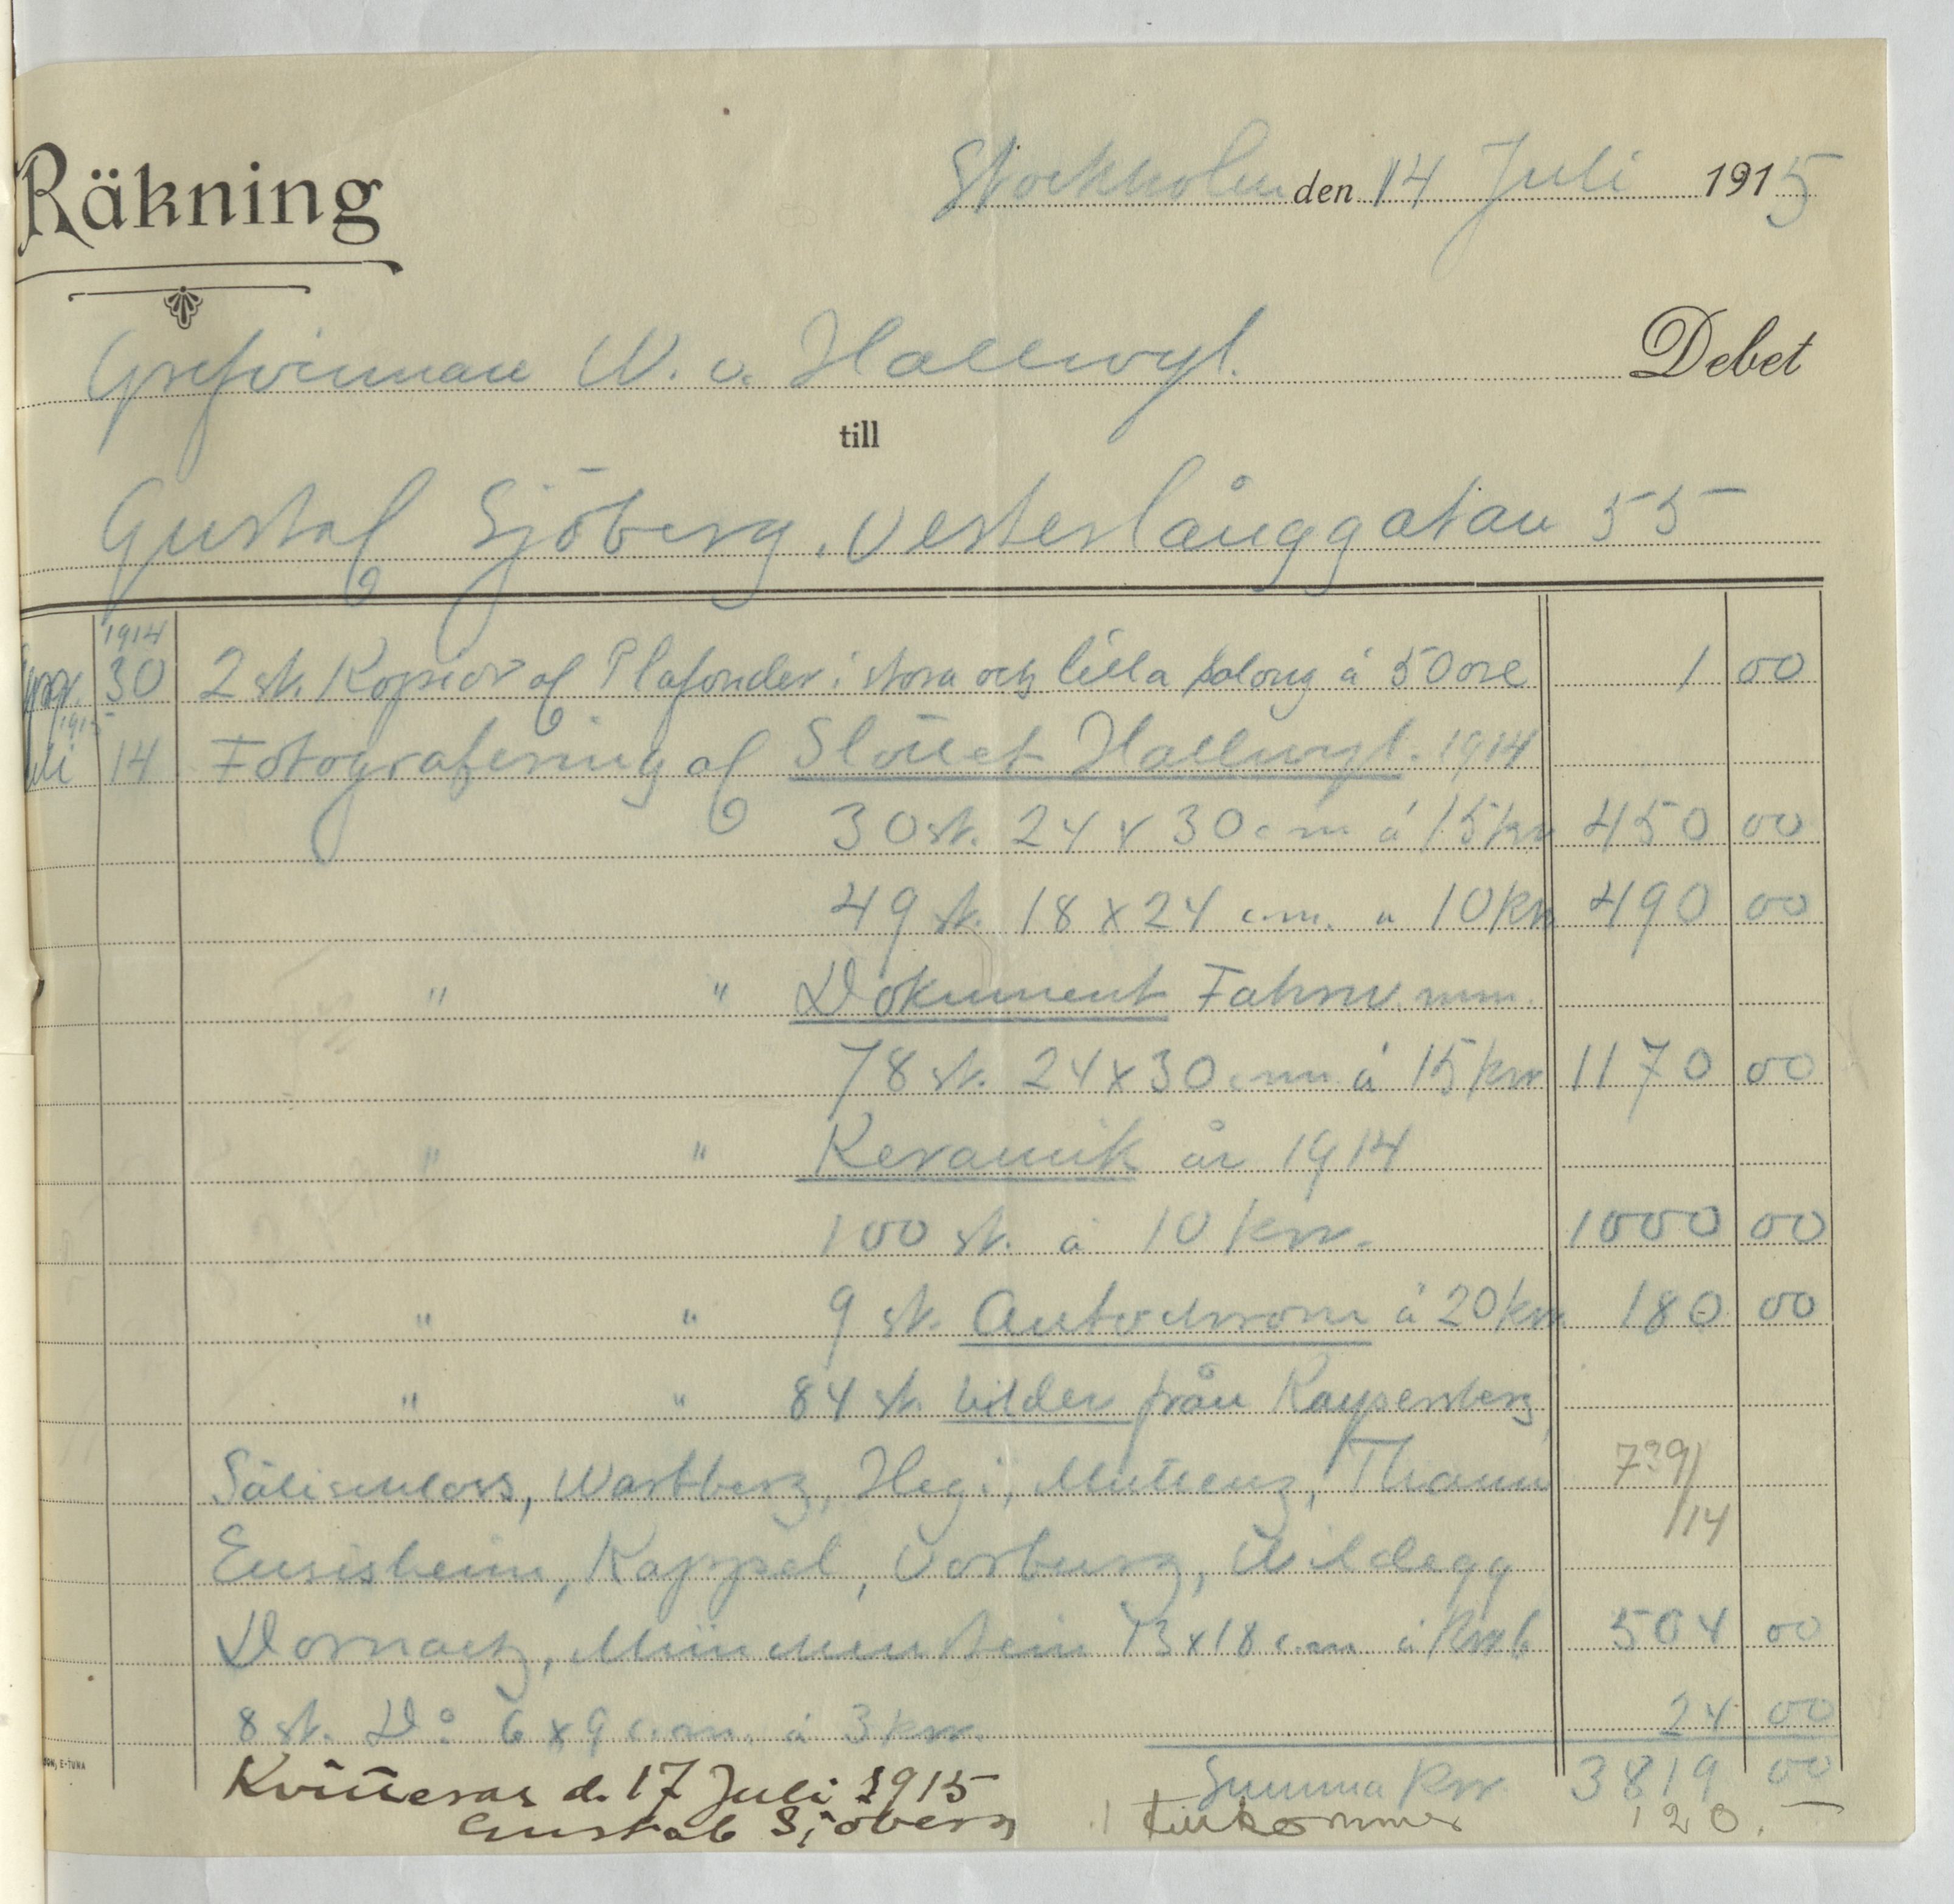 Räkning
Stockholm den 14 Juli 1915
Grefvinnan W. v. Hallwyl. Debet
till
Gustaf Sjöberg. Vesterlånggatan 55
1914
30 2 st. Kopior af Plafonder i stora och lilla salong á 50 öre 1 00
1915
14 Fotografering af Slottet Hallwyl. 1914
30 st. 24 x 30 c.m. á 15 kr 450 00
49 st. 18 x 24 c.m. " 10 kr 490 00
" " Dokument Fahrw. m.m.
78 st. 24 x 30 c.m. á 15 kr 1170 00
" " Keramik år 1914
100 st. á 10 kr. 1000 00
" " 9 st. Autochrom á 20 kr 180 00
" " 84 st. bilder från Kaysersberg
Sälischloss, Wartberg, Hegi, Muttenz, Thann 739/14
Ensisheim, Kappel, Vorburg, Wildegg
Dornach, Münchenstein 13 x 18 c.m. á Kr 6 504 00
8 st. D:o 6 x 9 c.m. á 3 kr. 24 00
Summa Kr 3819 00
Kvitteras d. 17 Juli 1915
Gustaf Sjöberg
tillkommer 120.—